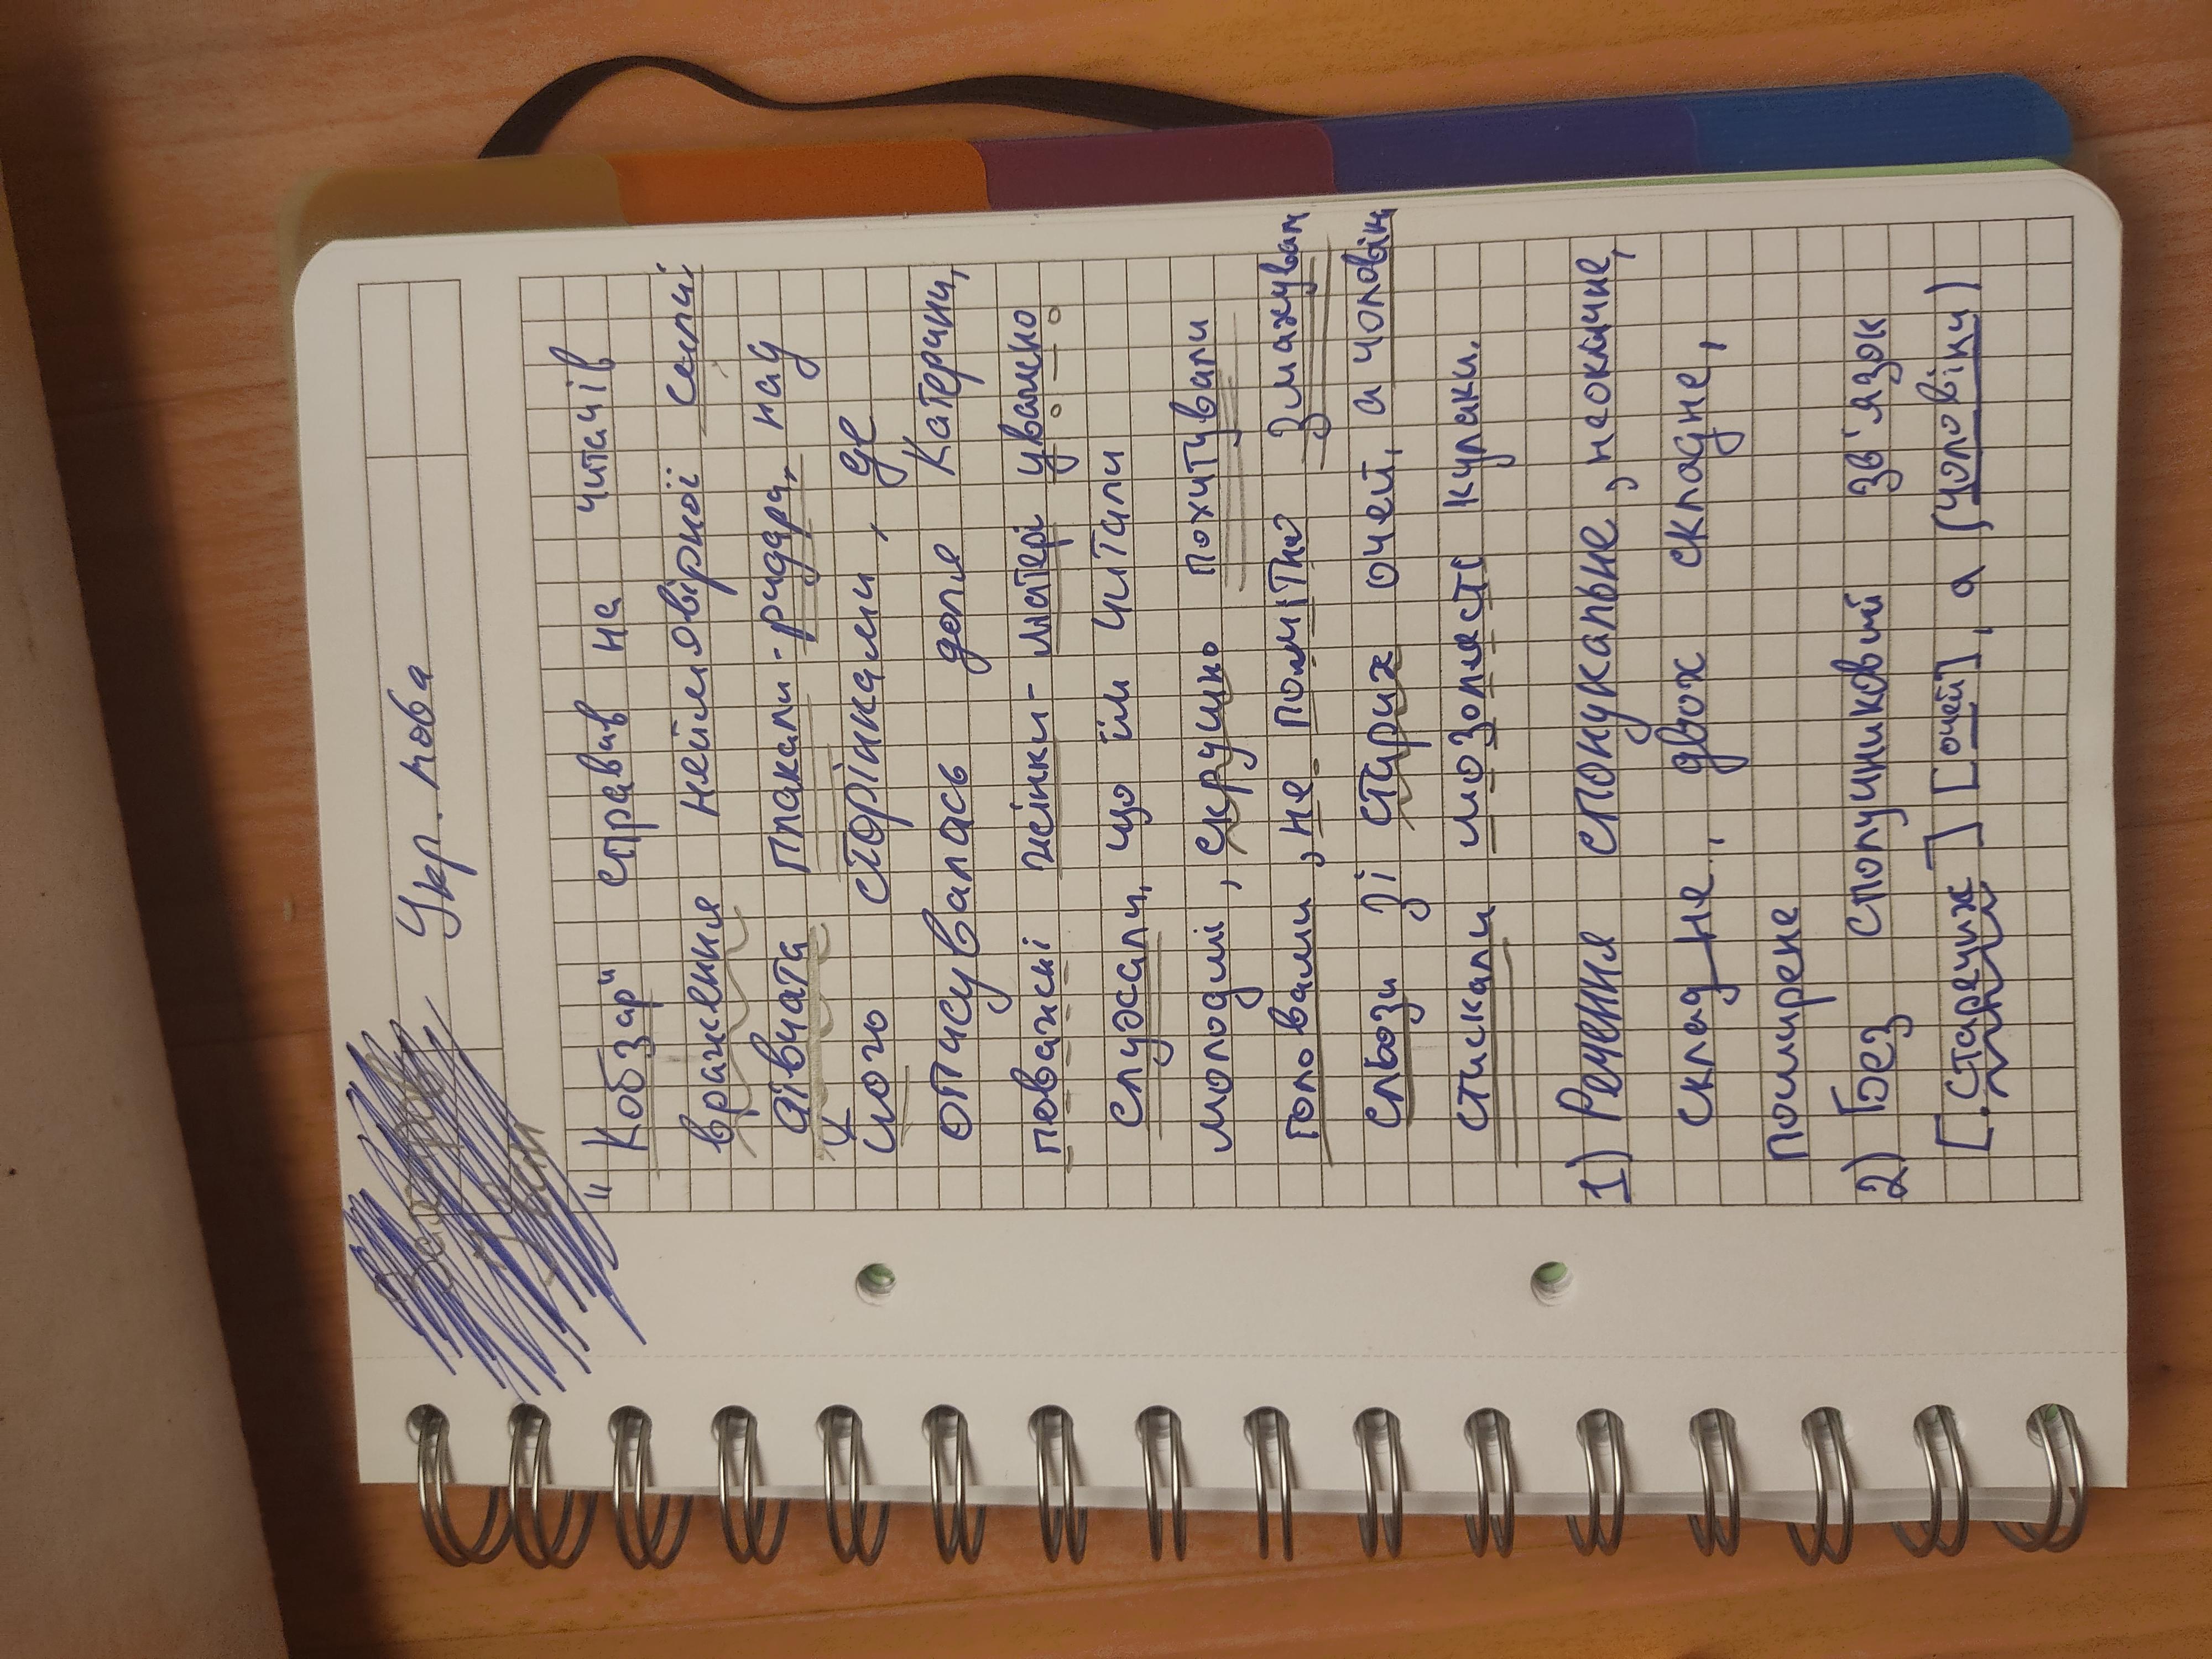 Укр. мова
"Кобзар" справив на читачів
враження неймовірної сили
дівчата плакали-ридара, над
його сторінками, де
описувалась доля Катерини,
поважні жінки-матері уважно
слухали, що їм читали
молоді, скрушно похитували
головами, не помітно змахували
сльози зі старих очей, а чоловіки
стискали мозолясті кулаки.
1) Речення спонукальне, неокличне,
складне, двох складне,
поширене
2) Без сполушниковий зв'язок
[.старечих] [очей], а (чоловіки)